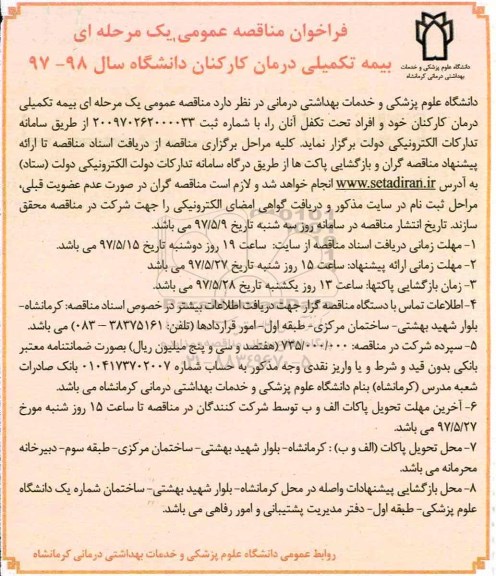 فراخوان مناقصه عمومی یک مرحله ای
بیمه تکمیلی درمان کارکنان دانشگاه سال ۹۸- ۹۷
دانشگاه علوم پزشکی و خدمات
بهداشتی درمانی کرمانشاه
دانشگاه علوم پزشکی و خدمات بهداشتی درمانی در نظر دارد مناقصه عمومی یک مرحله ای بیمه تکمیلی
درمان کارکنان خود و افراد تحت تکفل آنان را، با شماره ثبت ۲۰۰۹۷۰۲۶۲۰۰۰۰۳۳ از طریق سامانه
تدارکات الکترونیکی دولت برگزار نماید. کلیه مراحل برگزاری مناقصه از دریافت اسناد مناقصه تا ارائه
پیشنهاد مناقصه گران و بازگشایی پاکت ها از طریق درگاه سامانه تدارکات دولت الکترونیکی دولت (ستاد)
به آدرس www.setadiran.ir انجام خواهد شد و لازم است مناقصه گران در صورت عدم عضویت قبلی،
مراحل ثبت نام در سایت مذکور و دریافت گواهی امضای الکترونیکی را جهت شرکت در مناقصه محقق
سازند. تاریخ انتشار مناقصه در سامانه روز سه شنبه تاریخ ۹۷/۵/۹ می باشد.
۱- مهلت زمانی دریافت اسناد مناقصه از سایت: ساعت ۱۹ روز دوشنبه تاریخ ۹۷/۵/۱۵ می باشد.
۲- مهلت زمانی ارائه پیشنهاد: ساعت ۱۵ روز شنبه تاریخ ۹۷/۵/۲۷ می باشد
۳- زمان بازگشایی پاکتها: ساعت ۱۳ روز یکشنبه تاریخ ۹۷/۵/۲۸ می باشد.
۴- اطلاعات تماس با دستگاه مناقصه گزار جهت دریافت اطلاعات بیشتر در خصوص اسناد مناقصه: کرمانشاه-
بلوار شهید بهشتی- ساختمان مرکزی- طبقه اول- امور قراردادها (تلفن: ۳۸۳۷۵۱۶۱ – ۰۸۳) می باشد.
۵- سپرده شرکت در مناقصه: ۷۳۵/۰۰۰/۰۰۰ (هفتصد و سی و پنج میلیون ریال) بصورت ضمانتنامه معتبر
بانکی بدون قید و شرط و یا واریز نقدی وجه مذکور به حساب شماره ۰۱۰۴۱۷۳۷۰۲۰۰۷ بانک صادرات
شعبه مدرس (کرمانشاه) بنام دانشگاه علوم پزشکی و خدمات بهداشتی درمانی کرمانشاه می باشد.
۶- آخرین مهلت تحویل پاکات الف و ب توسط شرکت کنندگان در مناقصه تا ساعت ۱۵ روز شنبه مورخ
۹۷/۵/۲۷ می باشد.
۷- محل تحویل پاکات (الف و ب) : کرمانشاه- بلوار شهید بهشتی- ساختمان مرکزی- طبقه سوم- دبیرخانه
محرمانه می باشد.
۸- محل بازگشایی پیشنهادات واصله در محل کرمانشاه- بلوار شهید بهشتی- ساختمان شماره یک دانشگاه
علوم پزشکی- طبقه اول- دفتر مدیریت پشتیبانی و امور رفاهی می باشد.
روابط عمومی دانشگاه علوم پزشکی و خدمات بهداشتی درمانی کرمانشاه